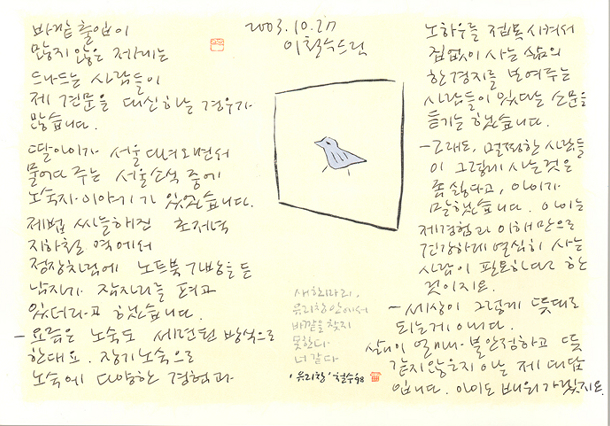 바깥 출입이
많지 않은 저에게는
드나드는 사람들이
제 견문을 대신하는 경우가
많습니다.
딸아이가 서울 다녀오면서
물어다 주는 서울소식 중에
노숙자 이야기가 있었습니다.
제법 쌀쌀해진 초저녁
지하철 역에서
정장차림에 노트북 가방을 든
남자가 잠자리를 펴고
있더라고 했습니다.
- 요즘은 노숙도 세련된 방식으로
한대요. 장기노숙으로
노숙에 다양한 경험과
2003.10.27
이철수드림
새 한마리,
유리창 안에서
바깥을 찾지
못한다.
너 같다
'유리창' 철수98
노하우를 접목시켜서
집없이 사는 삶의
한 경지를 보여주는
사람들이 있다는 소문을
듣기는 했습니다.
- 그래도, 멀쩡한 사람들
이 그렇게 사는것은
좀 싫다고, 아이가
말했습니다. 아이는
제 경험과 이해만으로
건강하게 열심히 사는
사람이 필요하다고 한
것이지요.
- 세상이 그렇게 뜻대로
되는게 아니다.
삶이 얼마나 불안정하고 뜻
같지 않은지 아는 제 대답
입니다. 아이도 배워가겠지요.